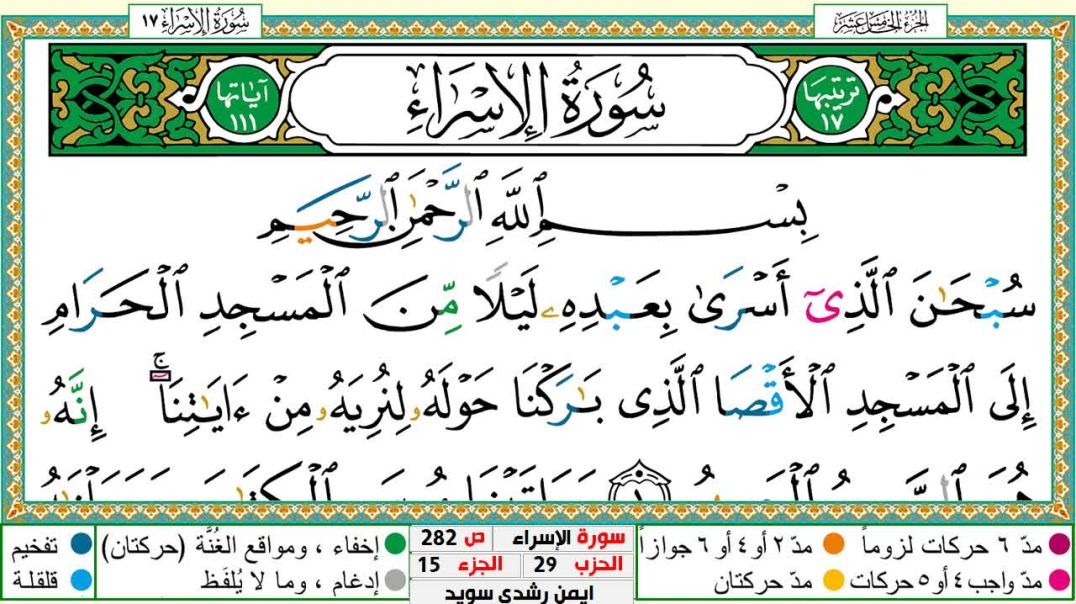 سُورَةُ الإِسْرَاءِ ١٧
الجُزْءُ الخَامِسَ عَشَرَ
ترتيبها ١٧
سُورَةُ الإِسْرَاءِ
آياتها ١١١
بِسْمِ ٱللَّهِ ٱلرَّحْمَٰنِ ٱلرَّحِيمِ
سُبْحَٰنَ ٱلَّذِىٓ أَسْرَىٰ بِعَبْدِهِۦ لَيْلًا مِّنَ ٱلْمَسْجِدِ ٱلْحَرَامِ
إِلَى ٱلْمَسْجِدِ ٱلْأَقْصَا ٱلَّذِى بَٰرَكْنَا حَوْلَهُۥ لِنُرِيَهُۥ مِنْ ءَايَٰتِنَآ ۚ إِنَّهُۥ
مدّ ٦ حركات لزوماً
مدّ ٢ أو ٤ أو ٦ جوازاً
مدّ واجب ٤ أو ٥ حركات
مدّ حركتان
سورة الإسراء
ص 282
الحزب 29
الجزء 15
ايمن رشدي سويد
إخفاء ، ومواقع الغُنَّة (حركتان)
تفخيم
إدغام ، وما لا يُلفَظ
قلقلة